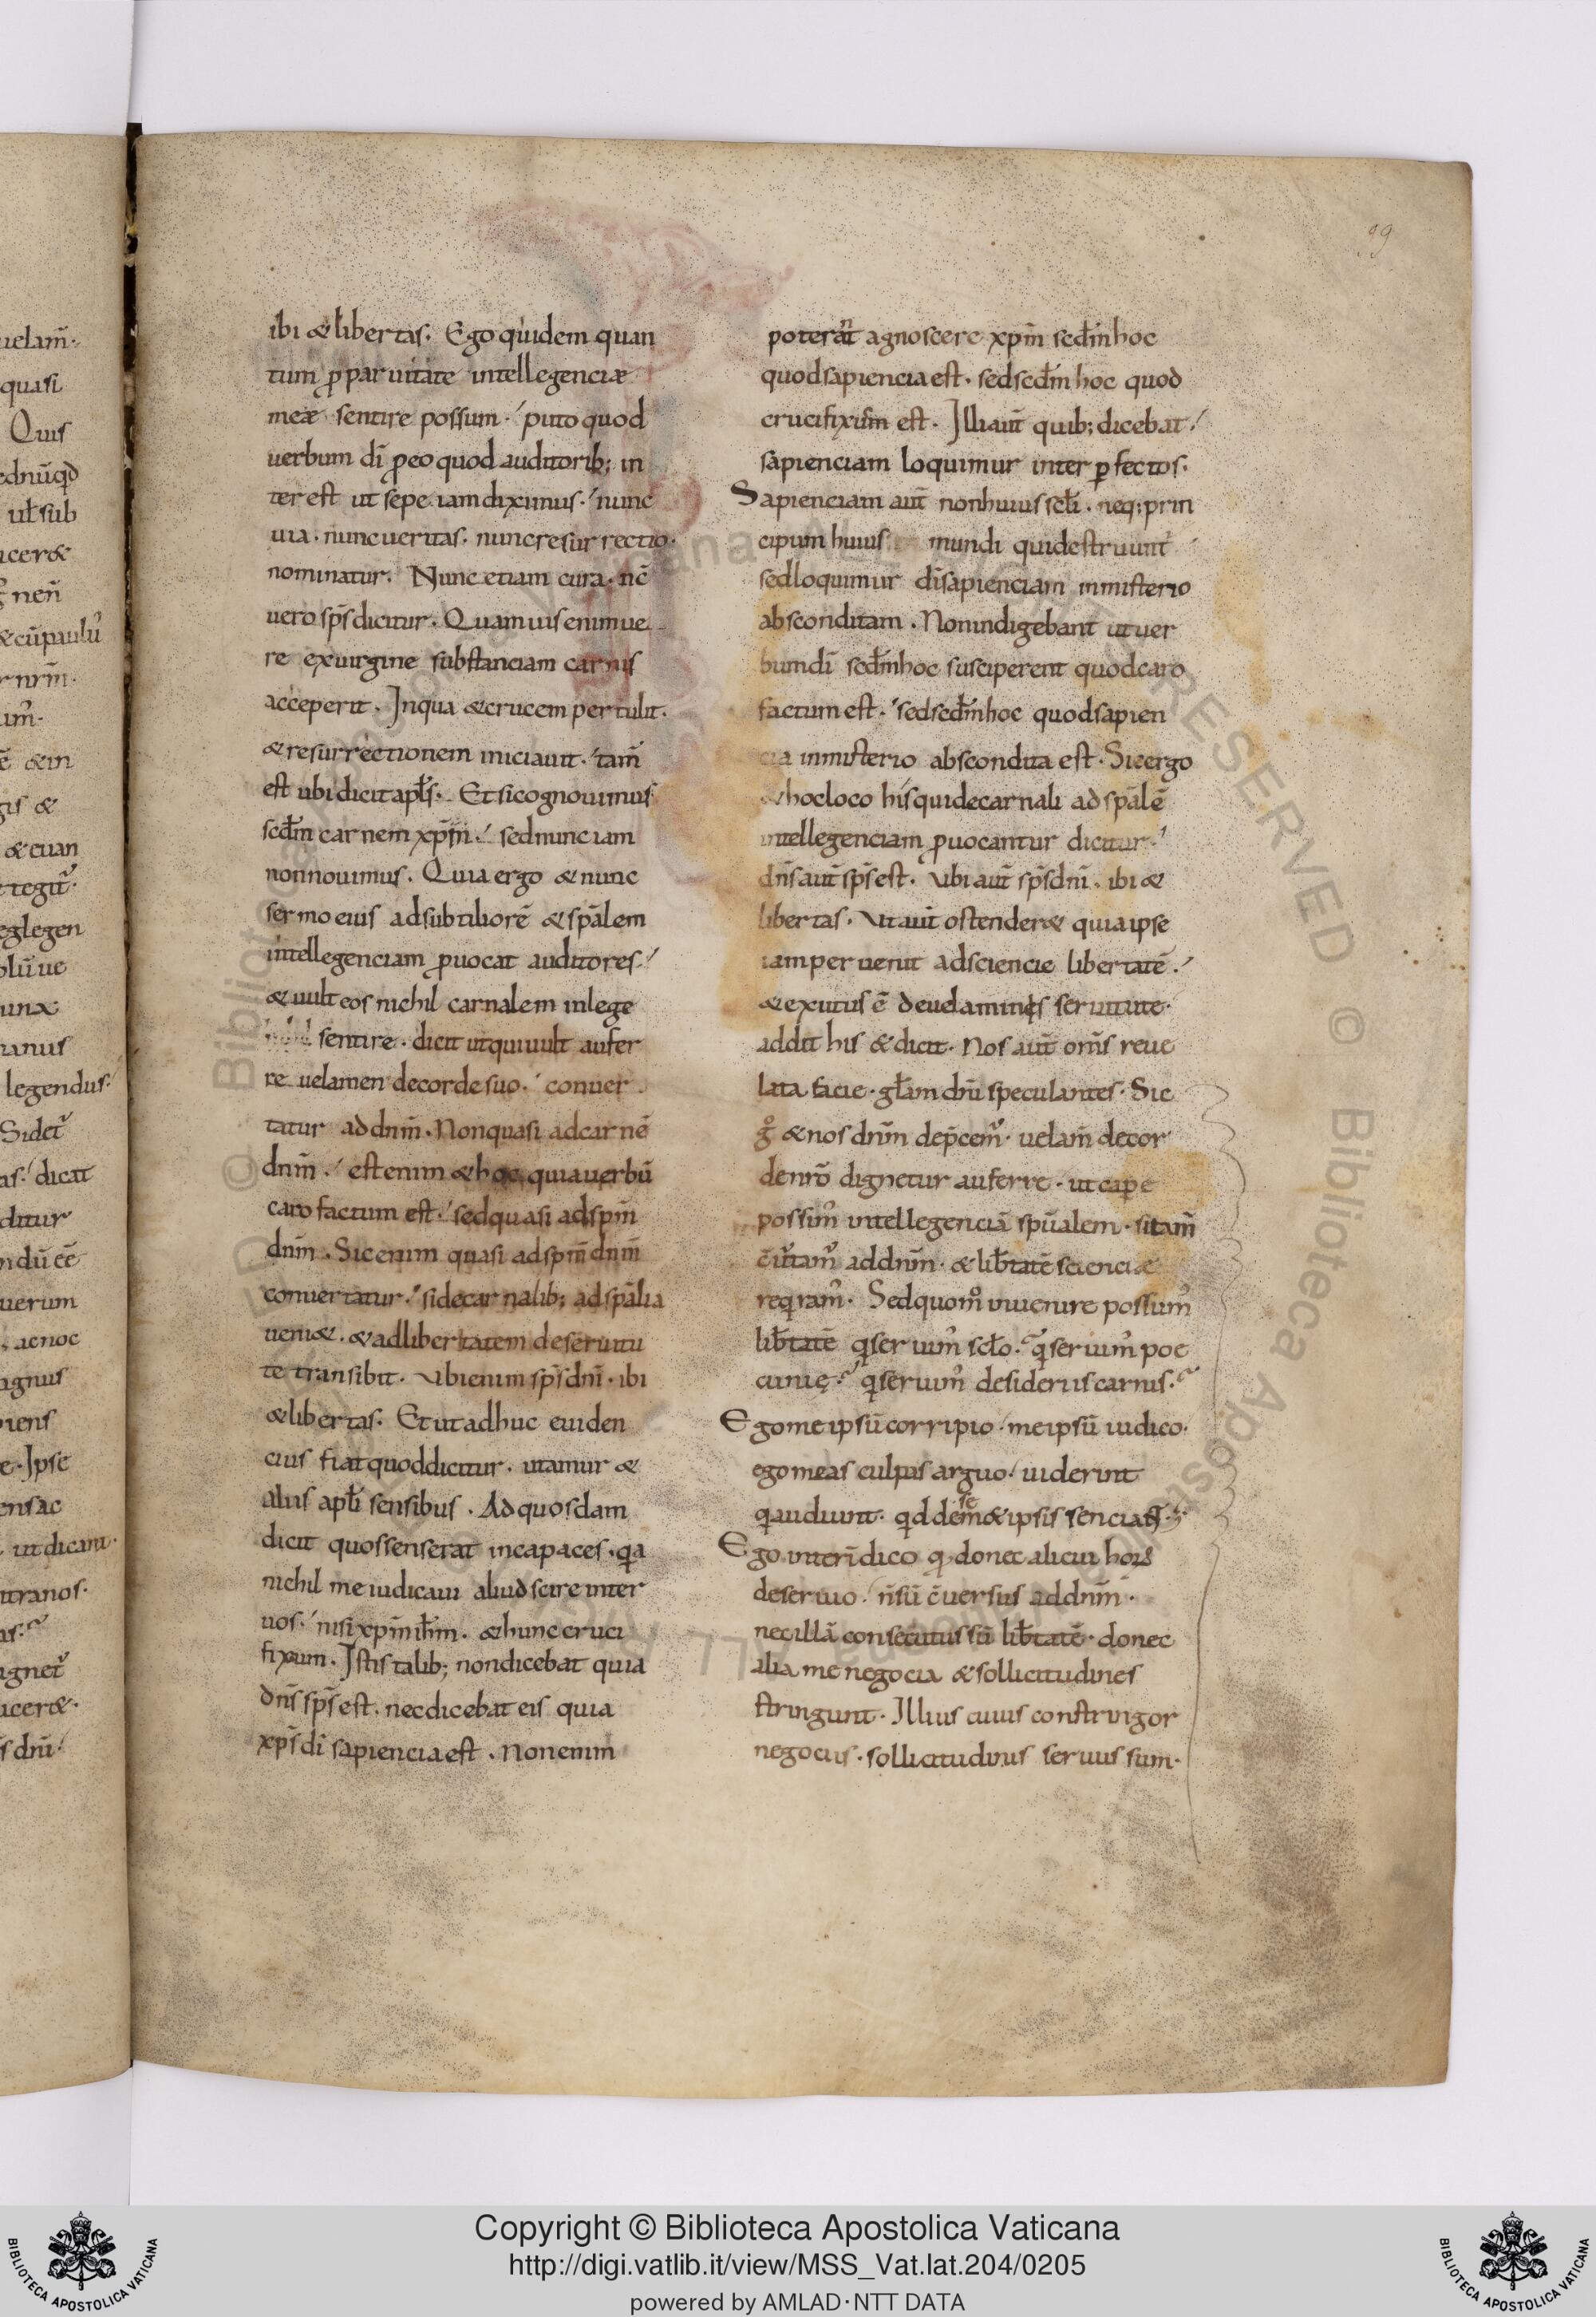 99
uelam̄·
quasi
Quis
ednūqd
ul̄ sub
acer&
nen̄
&cūpaulū
r nrm̄·
um̄·
ē &in
gis &
&euan
tegit᷑·
eglegen
olūue
unx
nanus
legendus·
Sidet᷑
as·/ dicat
ditur
ndū eē
uerum
ac hoc
agnus
piens
e· Ipse
ens ac
ut dicam·
utranos·
as·
ignet᷑
ucer&·
s dnī·
ibi & libertas· Ego quidem quan
tum p̱ paruitate intellegenciæ
meæ sentire possum·/ puto quod
uerbum dī p̱eo quod auditorib; in
ter est ut sepe iam diximus·/ nunc
uia· nunc ueritas· nunc resurrectio·
nominatur· Nunc etiam cura· nc̄
uero sp̄s dicitur· Quamuis enim ue
re ex uirgine substanciam carnis
acceperit· In qua & crucem pertulit·
& resurrectionem iniciauit·/ tam̄
est ubi dicit apl̄s· Et si cognouimus
scd̄m carnem xp̄m·/ sed nunc iam
non nouimus· Quia ergo & nunc
sermo eius ad subtiliorē & sp̄alem
intellegenciam p̱uocat auditores·/
& uult eos nichil carnalem in lege
sentire· dicit ut qui uult aufer
re uelamen de corde suo·/ conuer
tatur ad dnm̄· Non quasi ad carnē
dnm̄·/ est enim & hoc quia uerbū
caro factum est·/ sed quasi ad spm̄
dnm̄· Sic enim quasi ad spm̄ dnm̄
conuertatur·/ si de carnalib; ad sp̄alia
ueni&· & ad libertatem de seruitu
te transibit· Vbi enim sp̄s dnī· ibi
& libertas· Et ut adhuc euiden
cius fiat quod dicitur· utamur &
aliis apl̄i sensibus· Ad quosdam
dicit quos senserat incapaces· qa
nichil me iudicaui aliud scire inter
uos·/ nisi xp̄m ih̄m· & hunc cruci
fixum· Istis talib; non dicebat quia
dn̄s sp̄s est· nec dicebat eis quia
xp̄s dī sapiencia est· Non enim
poterant agnoscere xp̄m scd̄m hoc
quod sapiencia est· sed scd̄m hoc quod
crucifixum est· Illi aut̄ quib; dicebat·/
sapienciam loquimur inter p̱fectos·
Sapienciam aut̄ non huius scl̄i· neq; prin
cipum huius mundi qui destruunt
sed loquimur dī sapienciam in misterio
absconditam· Non indigebant ut uer
bum dī scd̄m hoc susciperent quod caro
factum est·/ sed scd̄m hoc quod sapien
cia in misterio abscondita est· Sic ergo
& hoc loco his qui de carnali ad sp̄alē
intellegenciam p̱uocantur dicitur·/
dn̄s aut̄ sp̄s est· Vbi aut̄ sp̄s dnī· ibi &
libertas· Vt aut̄ ostender& quia ipse
iam peruenit ad sciencie libertatē·/
& exutus ē de uelaminis seruitute·
addit his & dicit· Nos aut̄ om̄s reue
lata facie· gl̄am dnī speculantes· Sic
g̊ & nos dnm̄ dep̄cem᷒· uelam̄ de cor
de nrō dignetur auferre· ut cape
possim᷒ intellegenciā sp̄ualem· si tam̄
c̄u̔tam᷒ ad dnm̄· & lib̄tatē scienciæ
reqram᷒· Sed quom̊ inuenire possum᷒
lib̄tatē q seruim᷒ scl̄o· q seruim᷒ pec
cunię· q seruim᷒ desideriis carnis·
Ego me ipsū corripio· me ipsū iudico·
ego meas culpas arguo· uiderint
q audiunt· qd de sem& ipsis senciant·
Ego interī dico q donec alicui hor̄
deseruio·/ n̄ sū c̄uersus ad dnm̄·
nec illā consecutus sū lib̄tatē· donec
alia me negocia & sollicitudines
stringunt· Illius cuius constringor
negociis· sollicitudinis seruus sum·
© Biblioteca Apostolica Vaticana ALL RIGHTS RESERVED
Copyright © Biblioteca Apostolica Vaticana
http://digi.vatlib.it/view/MSS_Vat.lat.204/0205
powered by AMLAD·NTT DATA
BIBLIOTECA APOSTOLICA VATICANA
BIBLIOTECA APOSTOLICA VATICANA